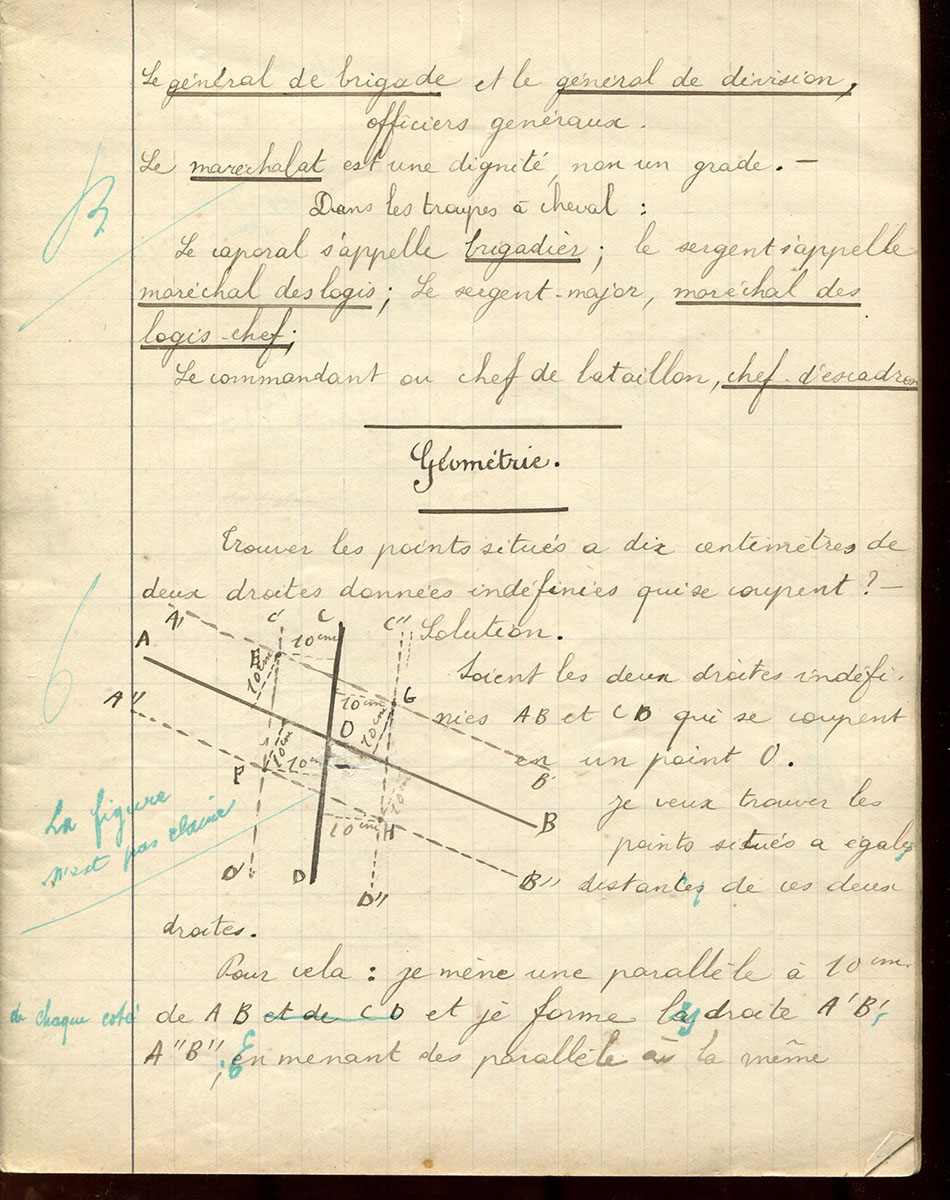 Le général de brigade et le général de division,
officiers généraux.
Le maréchalat est une dignité, non un grade. —
Dans les troupes à cheval :
B
Le caporal s'appelle brigadier ; le sergent s'appelle
maréchal des logis ; Le sergent-major, maréchal des
logis-chef ;
Le commandant ou chef de bataillon, chef-d'escadron
Géométrie.
Trouver les points situés a dix centimètres de
deux droites données indéfinies qui se coupent ? —
6
A' C' C C''
A 10 cm
E 10 cm
A'' 10 cm G
O 10 cm
10 cm
F 10 cm B'
10 cm
10 cm H B
D' D D'' B''
Solution.
Soient les deux droites indéfi-
nies AB et CD qui se coupent
en un point O.
je veux trouver les
points situés a égales
distantes de ces deux
droites.
La figure
n'est pas claire
Pour cela : je mène une parallèle à 10 cm.
de chaque coté
de AB et de CD et je forme les droite A'B',
A''B'', En menant des parallèle à la même